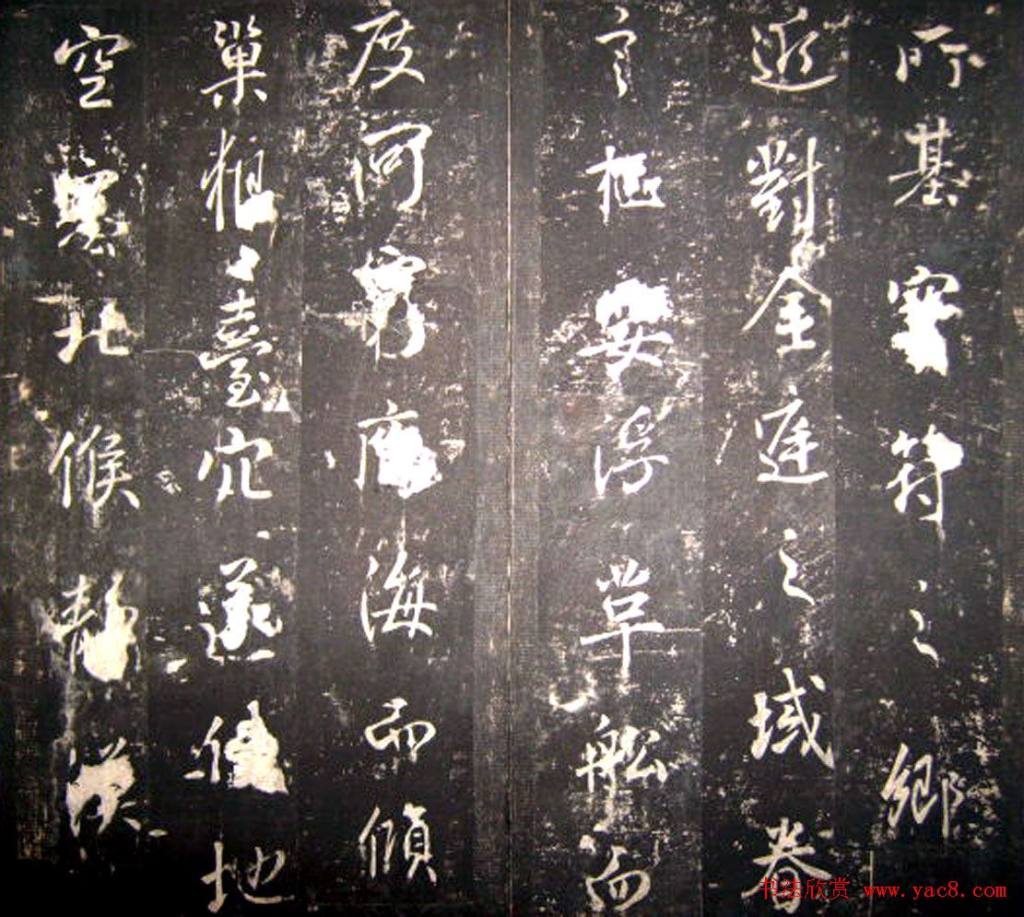 所基寶符之鄉
近對金庭之域眷
言要浮草船而
度河窮廣海而傾
巢狼臺穴遂使地
空塞北候靜漢
书法欣赏 www.yac8.com